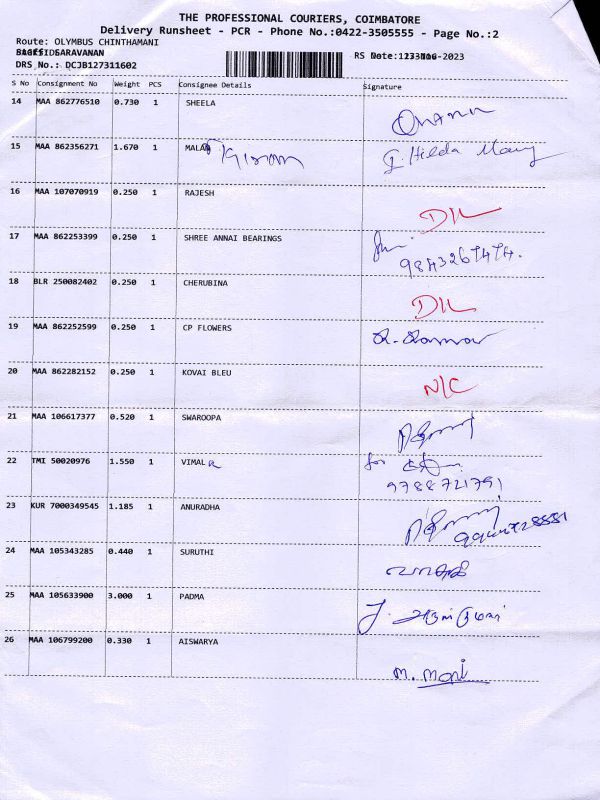 THE PROFESSIONAL COURIERS, COIMBATORE
Delivery Runsheet - PCR - Phone No.:0422-3505555 - Page No.:2
Route: OLYMBUS CHINTHAMANI
SARAVANAN
RS Date: -2023
DRS No.: DCJB127311602
S No Consignment No Weight PCS Consignee Details Signature
14 MAA 862776510 0.730 1 SHEELA
15 MAA 862356271 1.670 1 MALA Kiran J. Hilda Mary
16 MAA 107070919 0.250 1 RAJESH
D/L
17 MAA 862253399 0.250 1 SHREE ANNAI BEARINGS
9843267474.
18 BLR 250082402 0.250 1 CHERUBINA
D/L
19 MAA 862252599 0.250 1 CP FLOWERS
20 MAA 862282152 0.250 1 KOVAI BLEU
N/C
21 MAA 106617377 0.520 1 SWAROOPA
22 TMI 50020976 1.550 1 VIMAL for
9788721791
23 KUR 7000349545 1.185 1 ANURADHA
24 MAA 105343285 0.440 1 SURUTHI
25 MAA 105633900 3.000 1 PADMA
26 MAA 106799200 0.330 1 AISWARYA
M. Mani